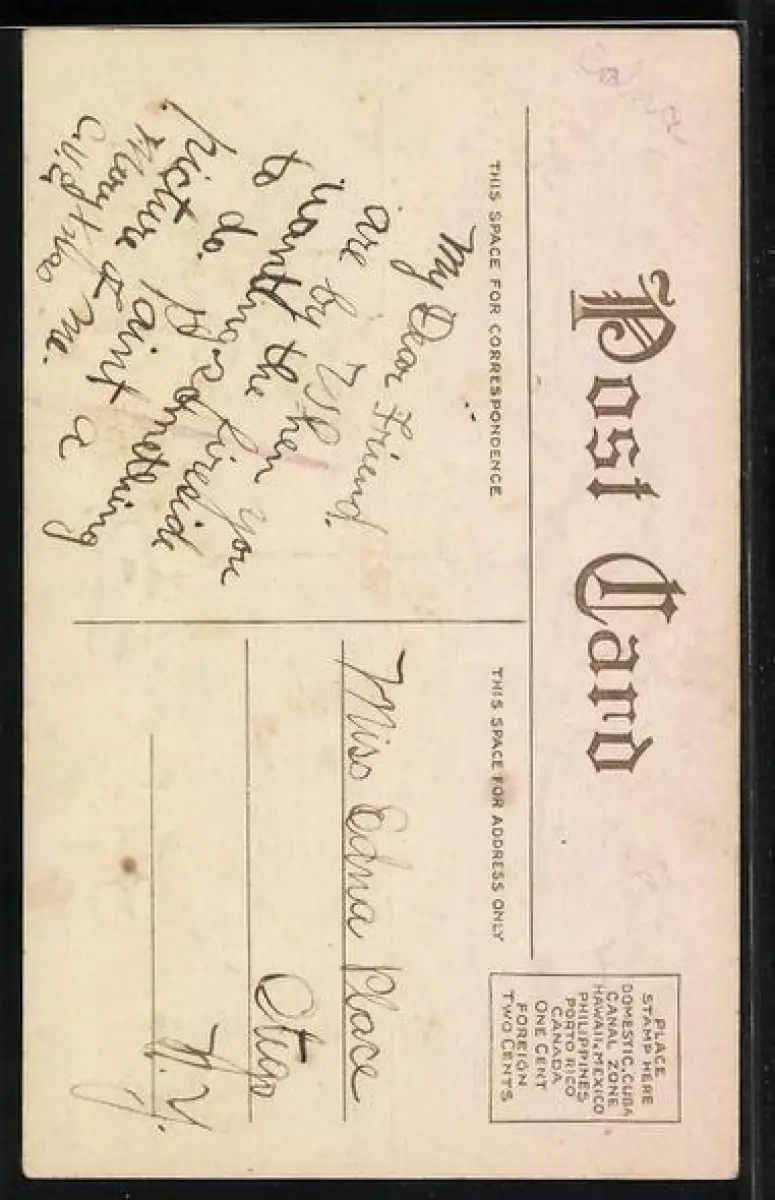 Post Card
THIS SPACE FOR CORRESPONDENCE
My Dear Friend.
When you
are by the fireside
wanting something
to do. paint a
picture of me.
Merry Xmas
THIS SPACE FOR ADDRESS ONLY
Miss Edna Place
Otego
N.Y.
PLACE
STAMP HERE
DOMESTIC, CUBA
CANAL ZONE
HAWAII, MEXICO
PHILIPPINES
PORTO RICO
CANADA
ONE CENT
FOREIGN
TWO CENTS